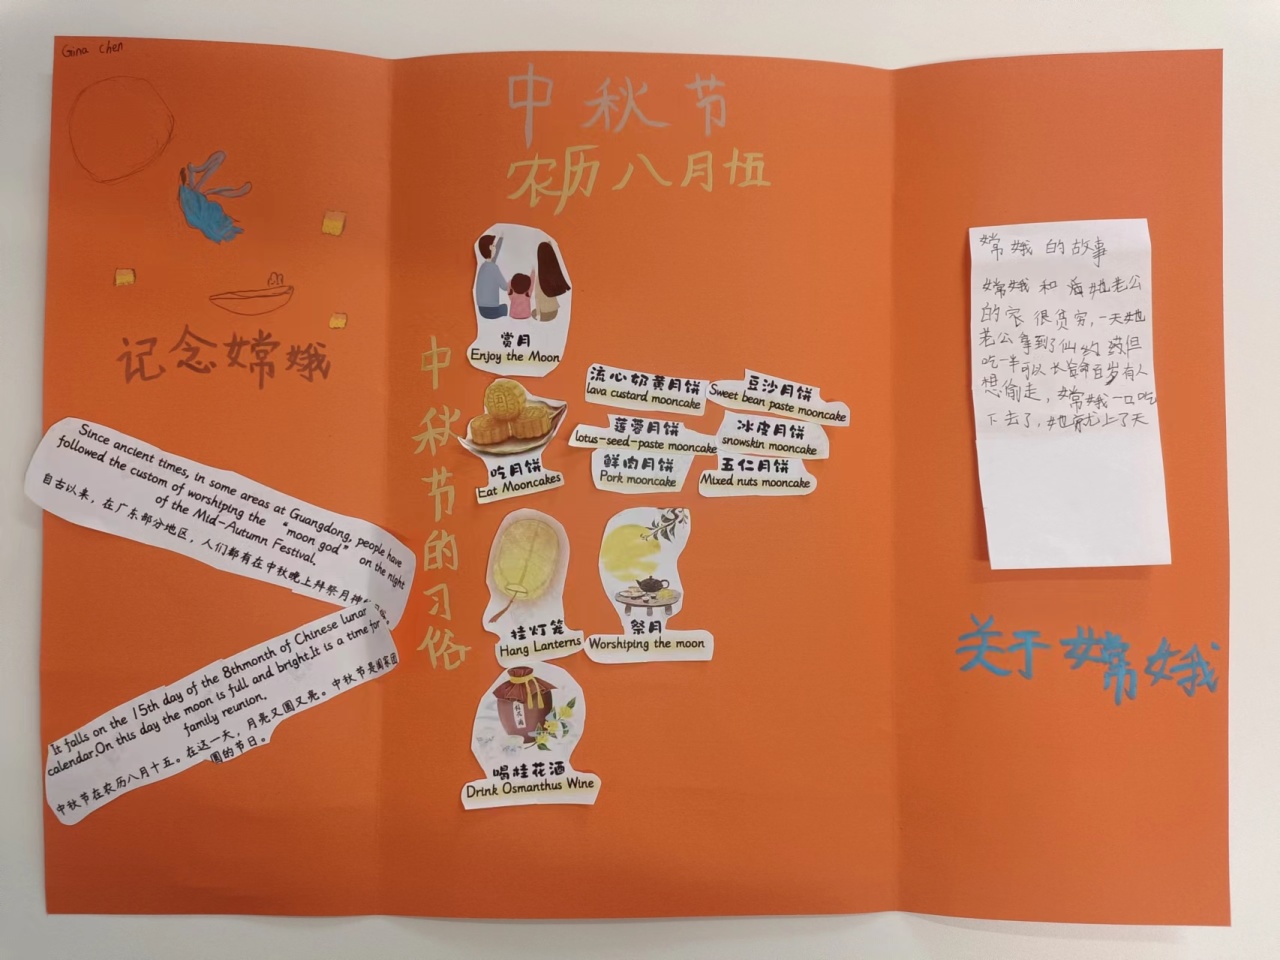 Gina Chen
记念嫦娥
Since ancient times, in some areas at Guangdong, people have
followed the custom of worshiping the "moon god" on the night
of the Mid-Autumn Festival.
自古以来，在广东部分地区，人们都有在中秋晚上拜祭月神
It falls on the 15th day of the 8thmonth of Chinese lunar
calendar.On this day the moon is full and bright.It is a time for
family reunion.
中秋节在农历八月十五。在这一天，月亮又圆又亮。中秋节是阖家团
圆的节日。
中秋节
农历八月十五
中秋节的习俗
赏月
Enjoy the Moon
吃月饼
Eat Mooncakes
流心奶黄月饼
lava custard mooncake
豆沙月饼
Sweet bean paste mooncake
莲蓉月饼
lotus-seed-paste mooncake
冰皮月饼
snowskin mooncake
鲜肉月饼
Pork mooncake
五仁月饼
Mixed nuts mooncake
挂灯笼
Hang Lanterns
祭月
Worshiping the moon
桂花酒
喝桂花酒
Drink Osmanthus Wine
嫦娥的故事
嫦娥和她老公
的家很贫穷，一天她
老公拿到了仙药但
吃一半可以长命百岁有人
想偷走，嫦娥一口吃
下去了，她就上了天
关于嫦娥